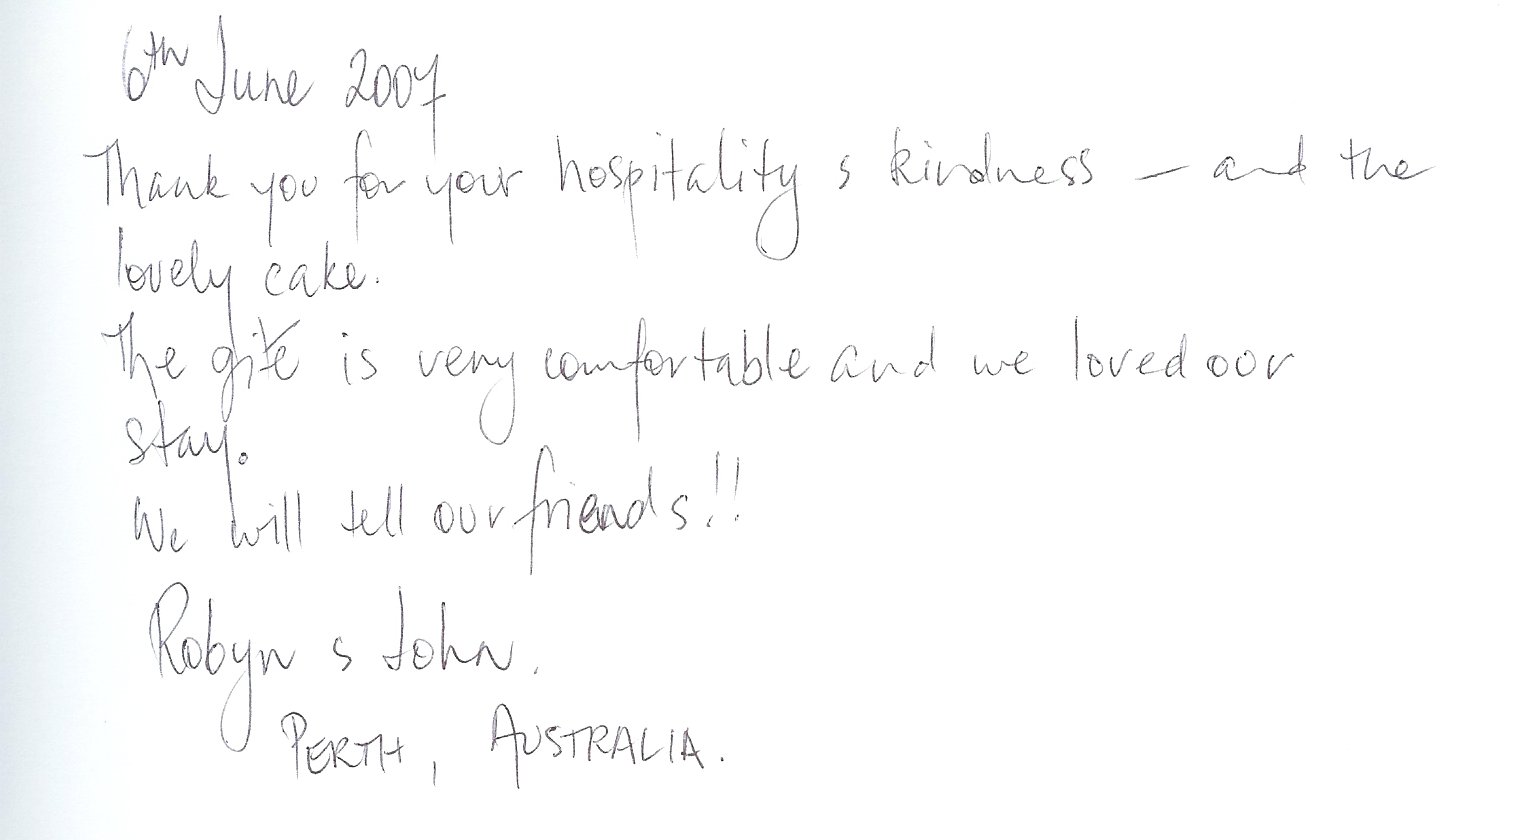 6th June 2007
Thank you for your hospitality & kindness – and the
lovely cake.
The gite is very comfortable and we loved our
stay.
We will tell our friends!!
Robyn & John.
PERTH, AUSTRALIA.